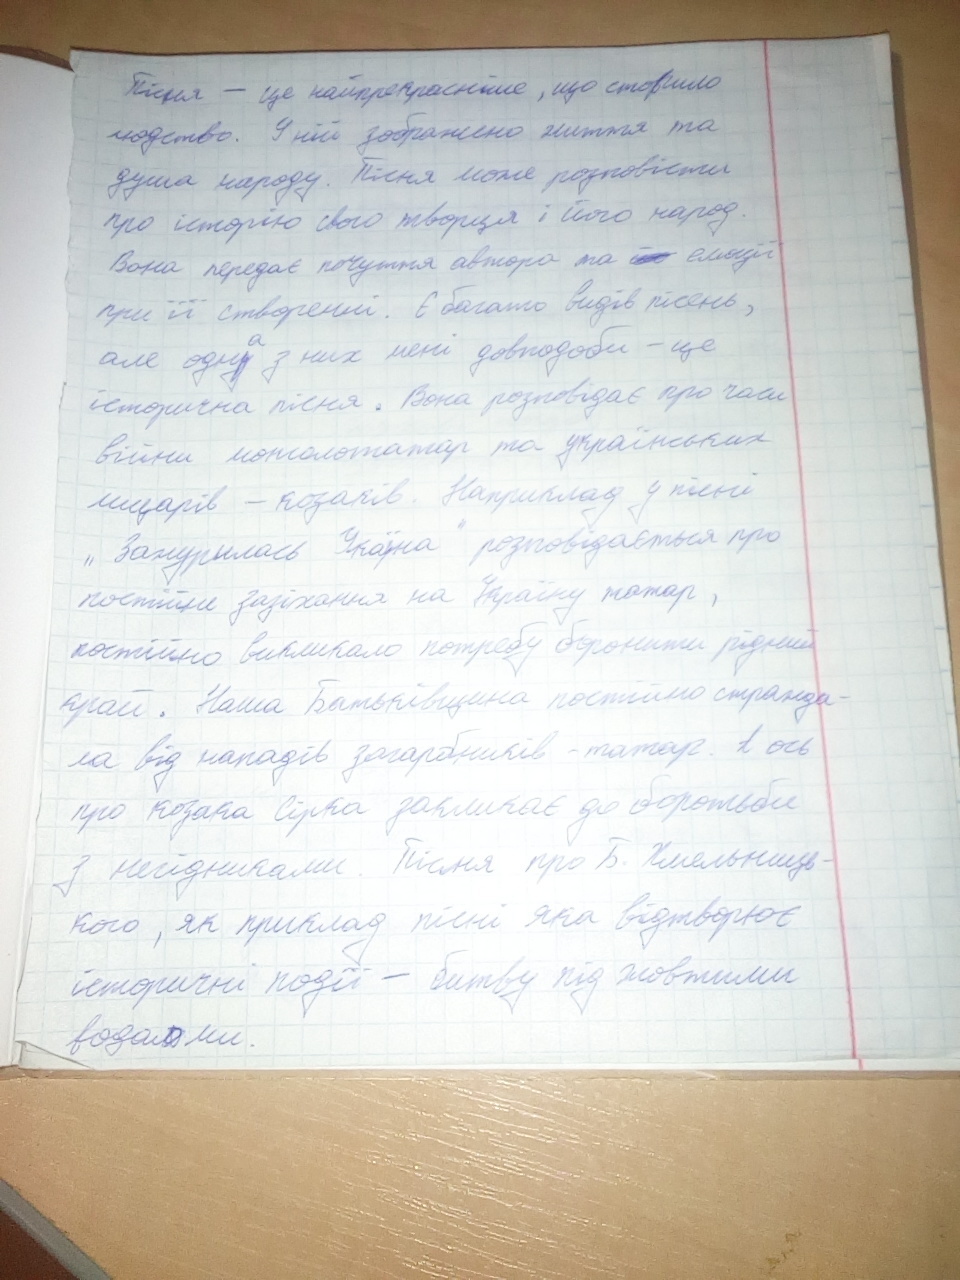 Пісня — це найпрекрасніше, що створило
людство. У ній зображено життя та
душа народу. Пісня може розповісти
про історію свого творця і його народ.
Вона передає почуття автора та емоції
при її створенні. Є багато видів пісень,
але одна з них мені довподоби – це
історична пісня. Вона розповідає про часи
війни монголотатар та українських
лицарів – козаків. Наприклад у пісні
„Зажурилась Україна" розповідається про
постійне зазіхання на Україну татар,
постійно викликало потребу боронити рідний
край. Наша Батьківщина постійно стражда-
ла від нападів загарбників - татар. А ось
про козака Сірка закликає до боротьби
з негідниками. Пісня про Б. Хмельниць-
кого, як приклад пісні яка відтворює
історичні події — битву під жовтими
водами.